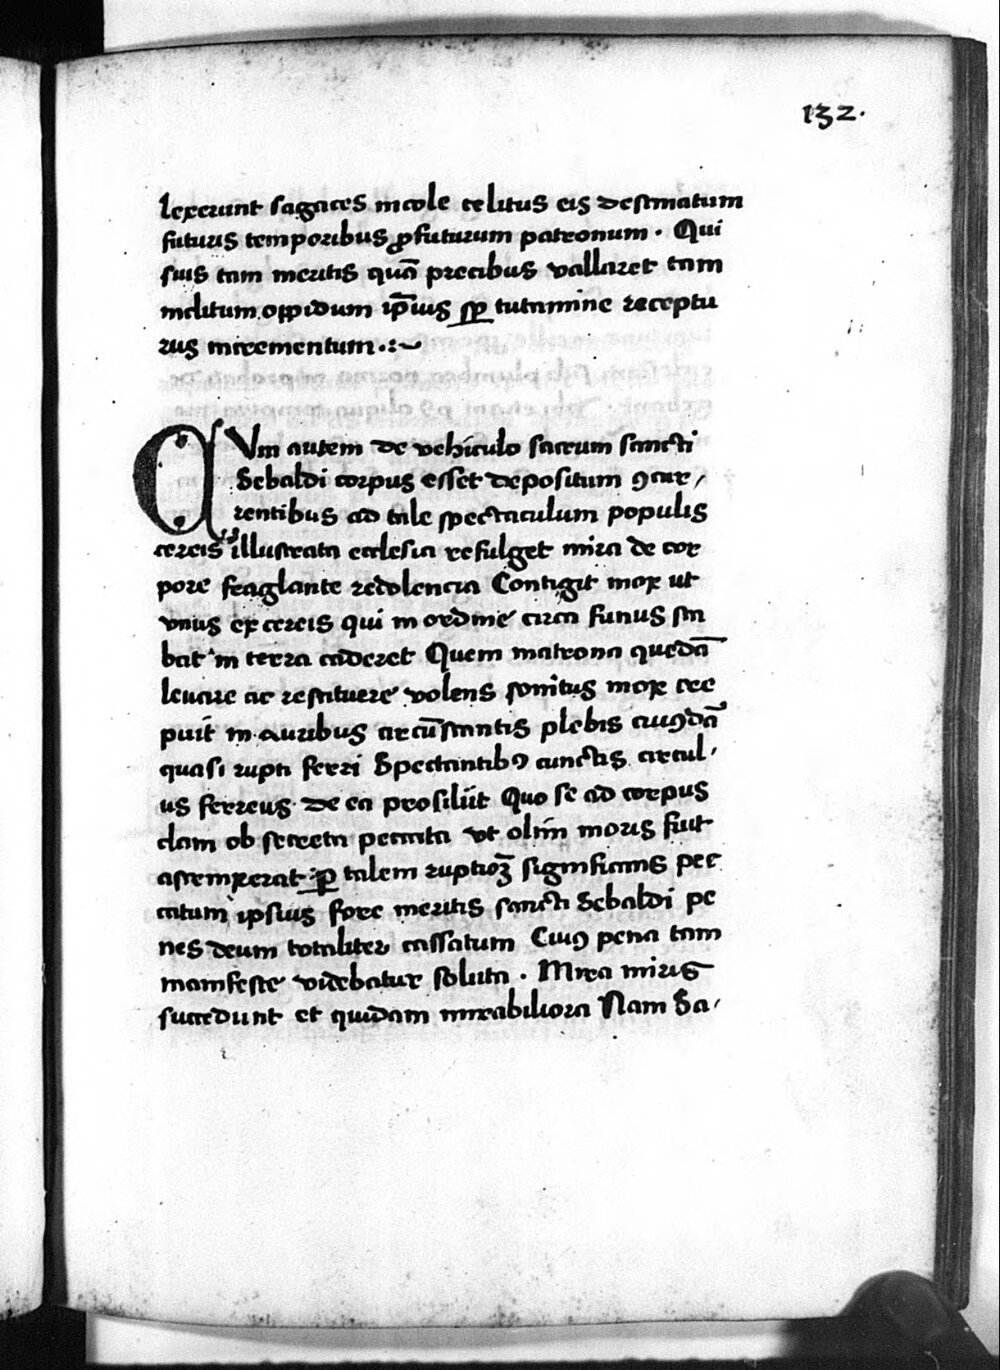 132.
lexerunt sagaces incole celitus eis destinatum
futuris temporibus ꝓfuturum patronum. Qui
suis tam meritis quā precibus vallaret tam
inclitum oppidum ip̄ius sꝑ tutamine receptu
rus incrementum.:~
CVm autem de vehiculo sacrum sancti
Sebaldi corpus esset depositum ꝯcur/
rentibus ad tale spectaculum populis
cereis illustrata ecclesia refulget mira de cor
pore fraglante redolencia Contigit mox ut
vnus ex cereis qui in ordine circa funus sta
bat in terra caderet Quem matrona quedā
leuare ac restituere volens sonitus mox cre
puit in auribus circūstantis plebis cuiꝯdā
quasi rupti ferri Spectantibꝯ cunctis circul/
us ferreus de ea prosiliit Quo se ad corpus
clam ob secreta peccata vt olim moris fuit
astrinxerat ꝑ talem ruptioꝫ significans pec
catum ipsius fore meritis sancti Sebaldi pe
nes deum totaliter cassatum Cuiꝯ pena tam
manifeste videbatur soluta. Mira miris
succedunt et quidam mirabiliora Nam Sa/